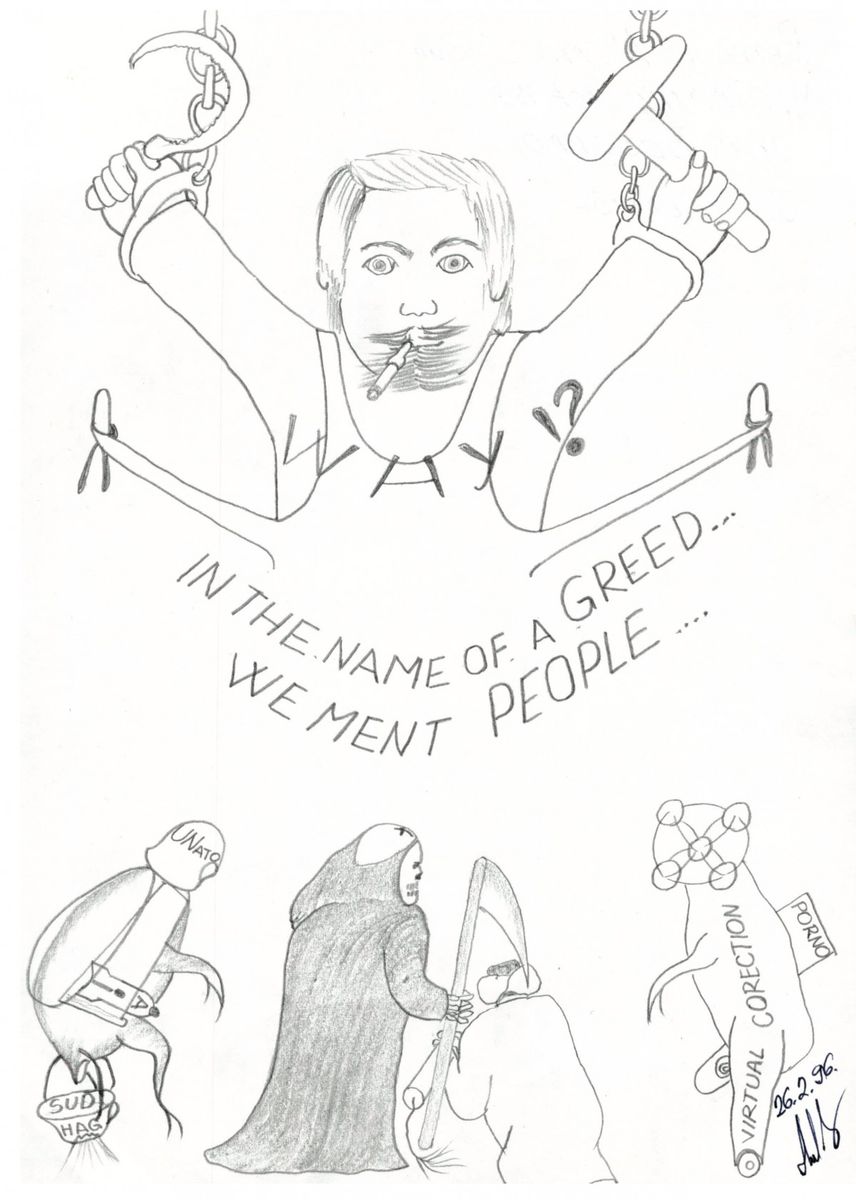 IN THE NAME OF A GREED...
WE MENT PEOPLE....
UNATO
SUD
HAG
PORNO
VIRTUAL CORECTION
26.2.96.